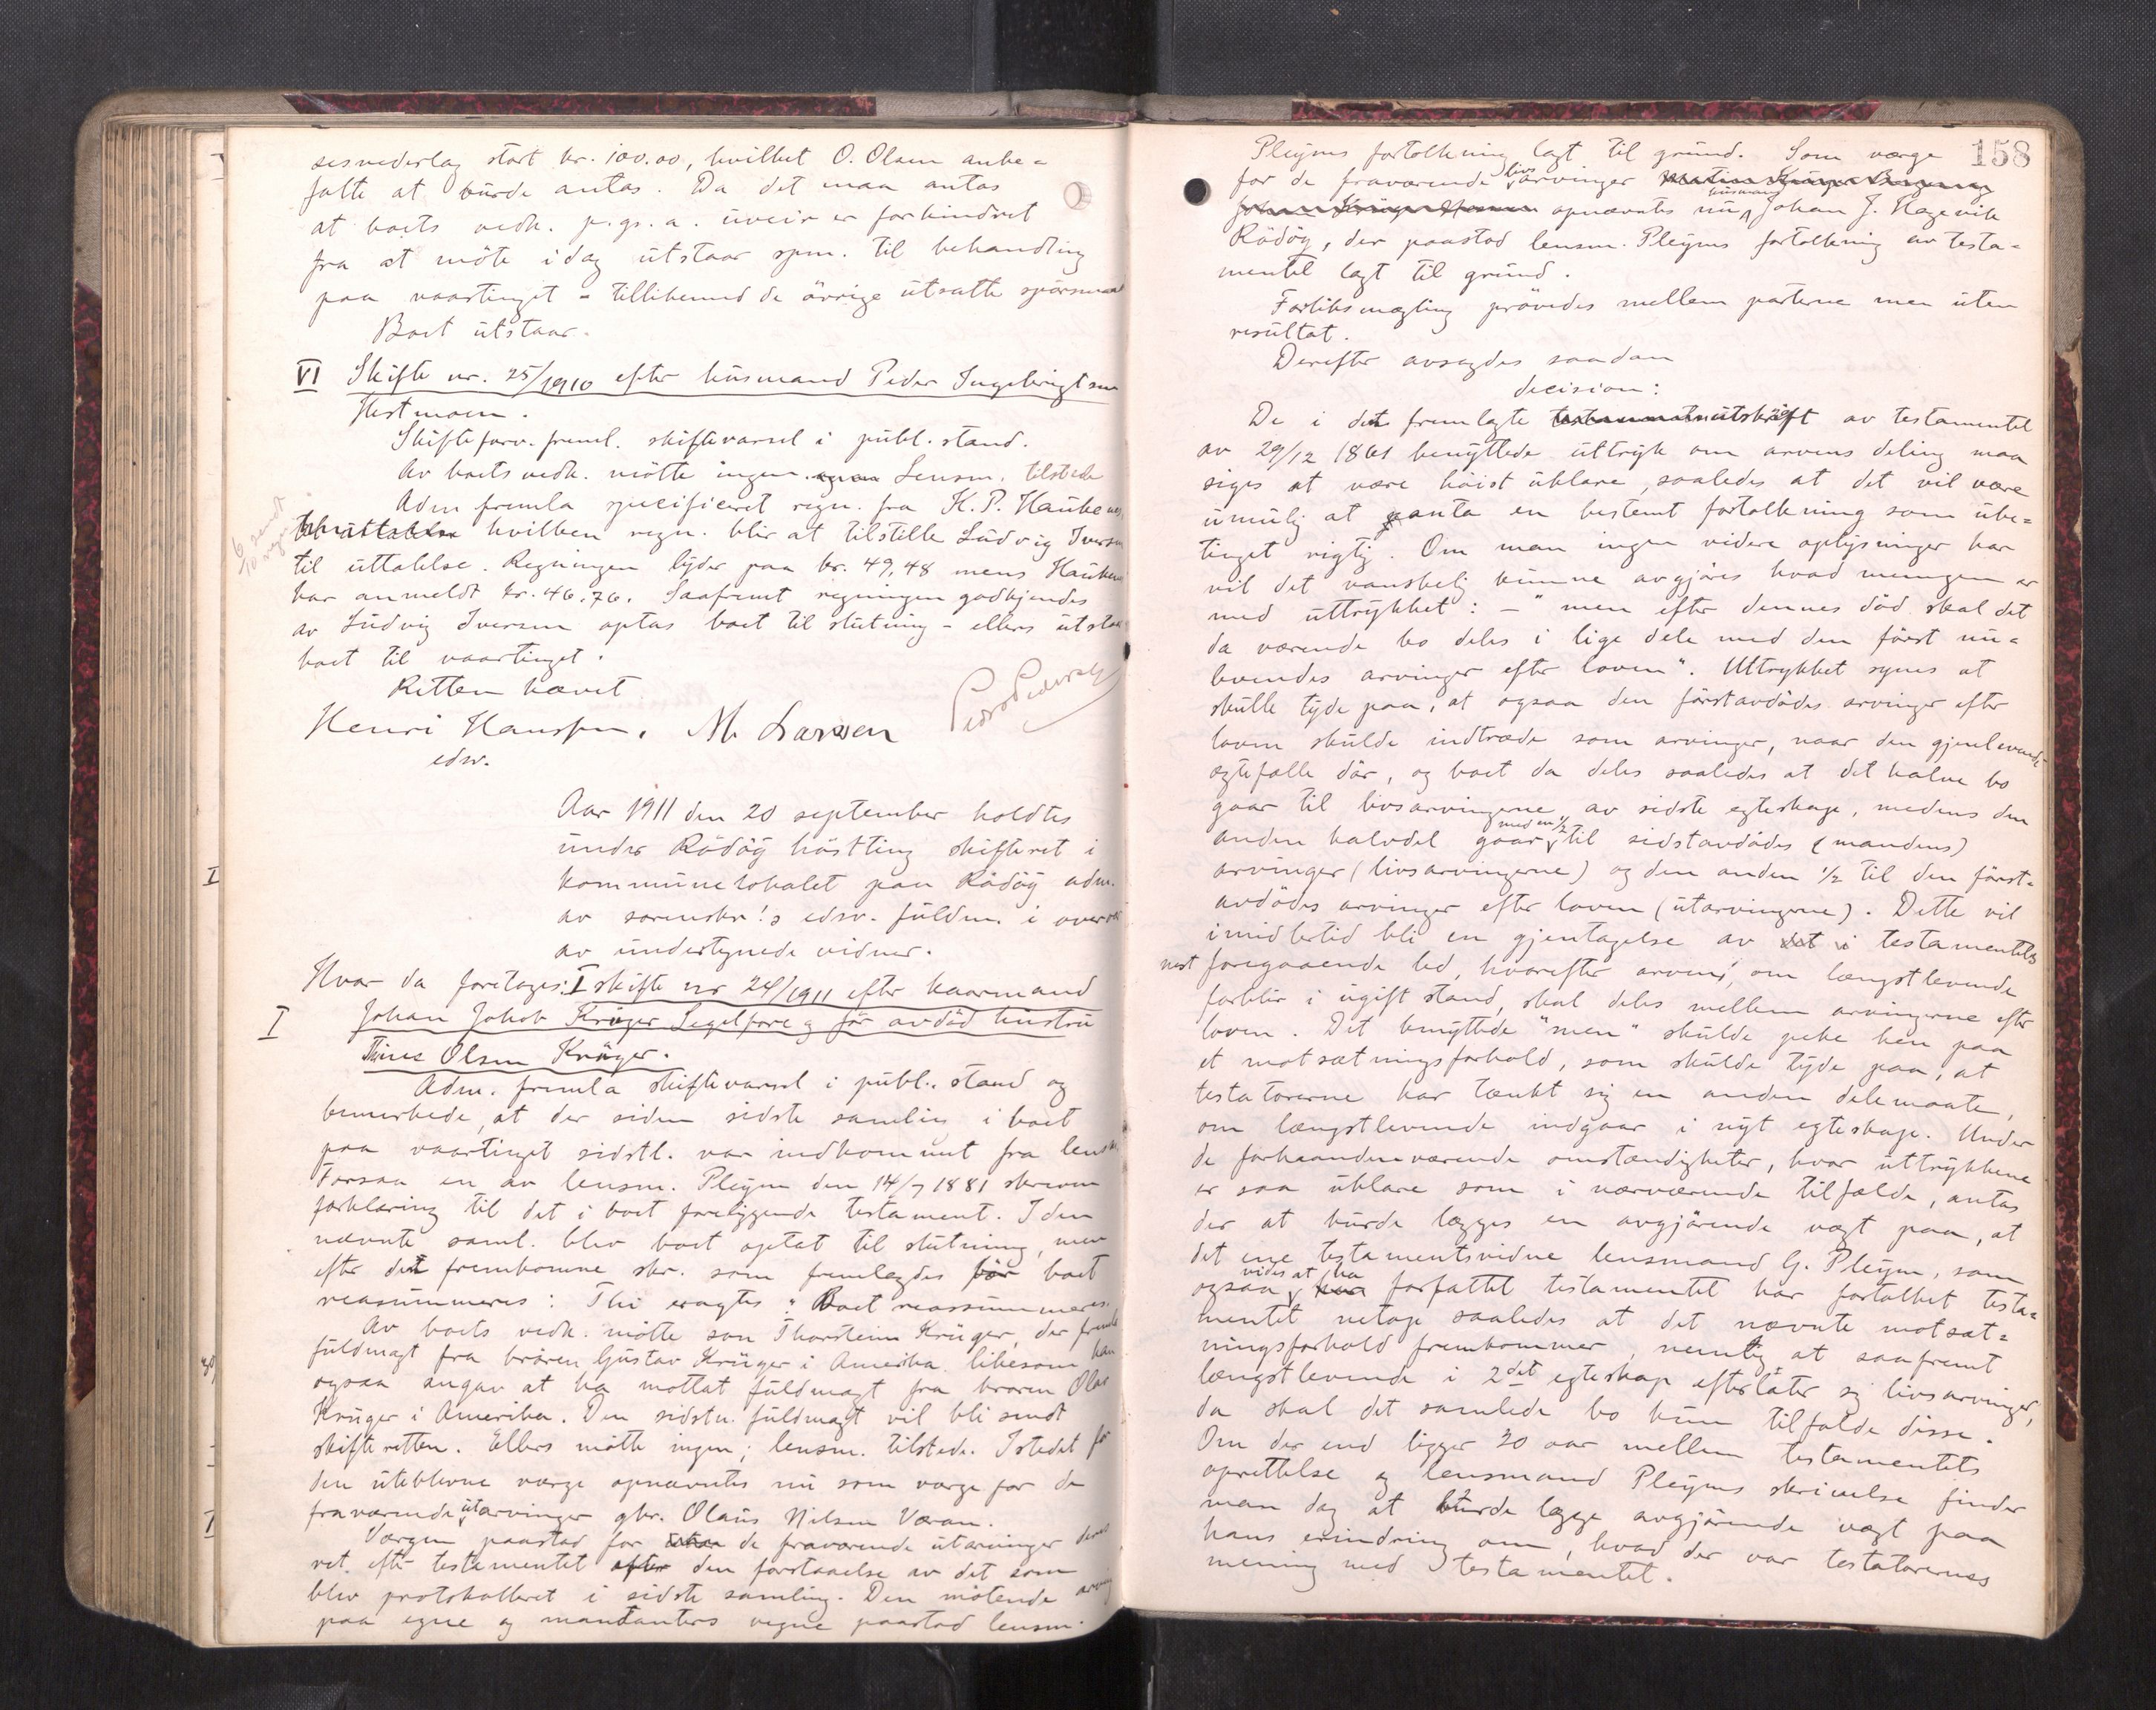 sesvederlag stort kr. 100.00, hvilket O. Olsen anbe=
falte at burde antas. Da det maa antas
at boets vedk. p.gr.a. uveir er forhindret
fra at möte idag utstaar spm. til behandling
paa vaartinget - tillikemed de övrige utsatte spörsmaal
Boet utstaar.
VI Skifte nr. 25/1910 efter husmand Peder Ingebrigtsen
Hestmoen.
Skifteforv. freml. skiftevarsel i publ. stand.
Av boets vedk. mötte ingen. Lensm. tilstede
Adm fremla specificeret regn. fra H. P. Hauknes,
hvilken regn. blir at tilstille Ludvig Iversen
til uttalelse. Regningen lyder paa kr. 49,48 mens Hauknes
har anmeldt kr. 46.76. Saafremt regningen godkjendes
av Ludvig Iversen optas boet til slutning - ellers utstaar
boet til vaartinget.
Retten hævet
Henri Hanssen. M. Larssen Pedro Pedersen
edsv.
Aar 1911 den 20 september holdtes
under Rödöy höstting skifteret i
kommunelokalet paa Rödöy adm.
av sorenskr's edsv. fuldm. i overvær
av undertegnede vidner.
Hvor da foretoges: I skifte nr 24/1911 efter kaarmand
I Johan Jakob Krüger Segelfore og før avdöd hustru
Olsen Krüger.
Adm. fremla skiftevarsel i publ. stand og
bemerkede, at der siden sidste samling i boet
paa vaartinget sidstl. var indkommet fra lensm.
Forsaa en av lensm. Pleym den 14/7 1881 skreven
forklaring til det i boet foreliggende testament. I den
nævnte saml. blev boet optat til slutning, men
efter det fremkomne skr. som fremlægdes bör boet
reasumeres: Thi eragtes: Boet reassummeres.
Av boets vedk. mötte son Thorstein Krüger, der fremla
fuldmagt fra broren Gustav Krüger i Amerika likesom han
ogsaa angav at ha mottat fuldmagt fra broren Olaf
Krüger i Amerika. Den sidstn. fuldmagt vil bli sendt
skifteretten. Ellers mötte ingen; lensm. tilstede. Istedet for
den uteblevne værge opnævntes nu som værge for de
fraværende utarvinger gbr. Olaus Nilsen Væran.
Værgen paastod for de fraværende utarvinger deres
ret efter testamentet efter den forstaaelse av det som
blev protokolleret i sidste samling. Den mötende arving
paa egne og mandanters vegne paastod lensm.
158
Pleyms fortolkning lagt til grund. Som værge
for de fraværende livsarvinger
opnævntes nu husmand Johan J. Hagevik
Rödöy, der paastod lensm. Pleyms fortolkning av testa=
mentet lagt til grund.
Forliksmægling prövedes mellem parterne men uten
resultat.
Derefter avsagdes saadan
decision:
De i det fremlagte testamentsutskrift av testamentet
av 29/12 1861 benyttede uttryk om arvens deling maa
siges at være höist uklare, saaledes at det vil være
umulig at anta en bestemt fortolkning som ube=
tinget rigtig. Om man ingen videre oplysninger har
vil det vanskelig kunne avgjöres hvad meningen er
med uttrykket: - "men efter dennes död skal det
da værende bo deles i lige dele med den först nu=
levendes arvinger efter loven". Uttrykket synes at
skulle tyde paa, at ogsaa den förstavdödes arvinger efter
loven skulde indtræde som arvinger, naar den gjenlevende
egtefælle dör, og boet da deles saaledes at det halve bo
gaar til livsarvingerne av sidste egteskap, medens den
anden halvdel gaar med en 1/2 til sidstavdödes (mandens)
arvinger (livsarvingerne) og den anden 1/2 til den först=
avdödes arvinger efter loven (utarvingerne). Dette vil
imidlertid bli en gjentagelse av det i testamentets
nest foregaaende led, hvorefter arven, om længstlevende
forblir i ugift stand, skal deles mellem arvingerne efter
loven. Det benyttede "men" skulde peke hen paa
et motsætningsforhold, som skulde tyde paa, at
testatorerne har tænkt sig en anden delemaate,
om længstlevende indgaar i nyt egteskap. Under
de forhaandenværende omstændigheter, hvor uttrykkene
er saa uklare som i nærværende tilfælde, antas
der at burde lægges en avgjörende vægt paa, at
det ene testamentsvidne lensmand G. Pleym, som
ogsaa vides at ha forfattet testamentet har fortolket testa=
mentet netop saaledes at det nævnte motsæt=
ningsforhold fremkommer, nemlig at saafremt
længstlevende i 2det egteskap efterlater sig livsarvinger,
da skal det samlede bo kun tilfalde disse.
Om der end ligger 20 aar mellem testamentets
oprettelse og lensmand Pleyms skrivelse finder
man dog at burde lægge avgjörende vægt paa
hans erindring om, hvad der var testatorernes
mening med testamentet.